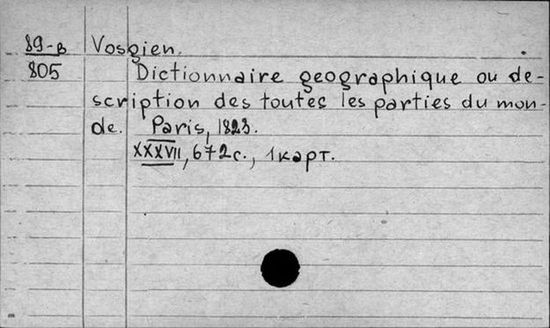 89-в Vosgien.
805 Dictionnaire geographique ou de-
scription des toutes les parties du mon-
de. Paris, 1823.
XXXVII, 672 с., 1 карт.